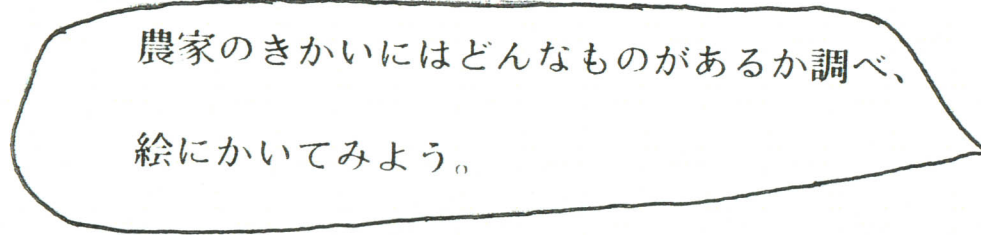 農家のきかいにはどんなものがあるか調べ、
絵にかいてみよう。